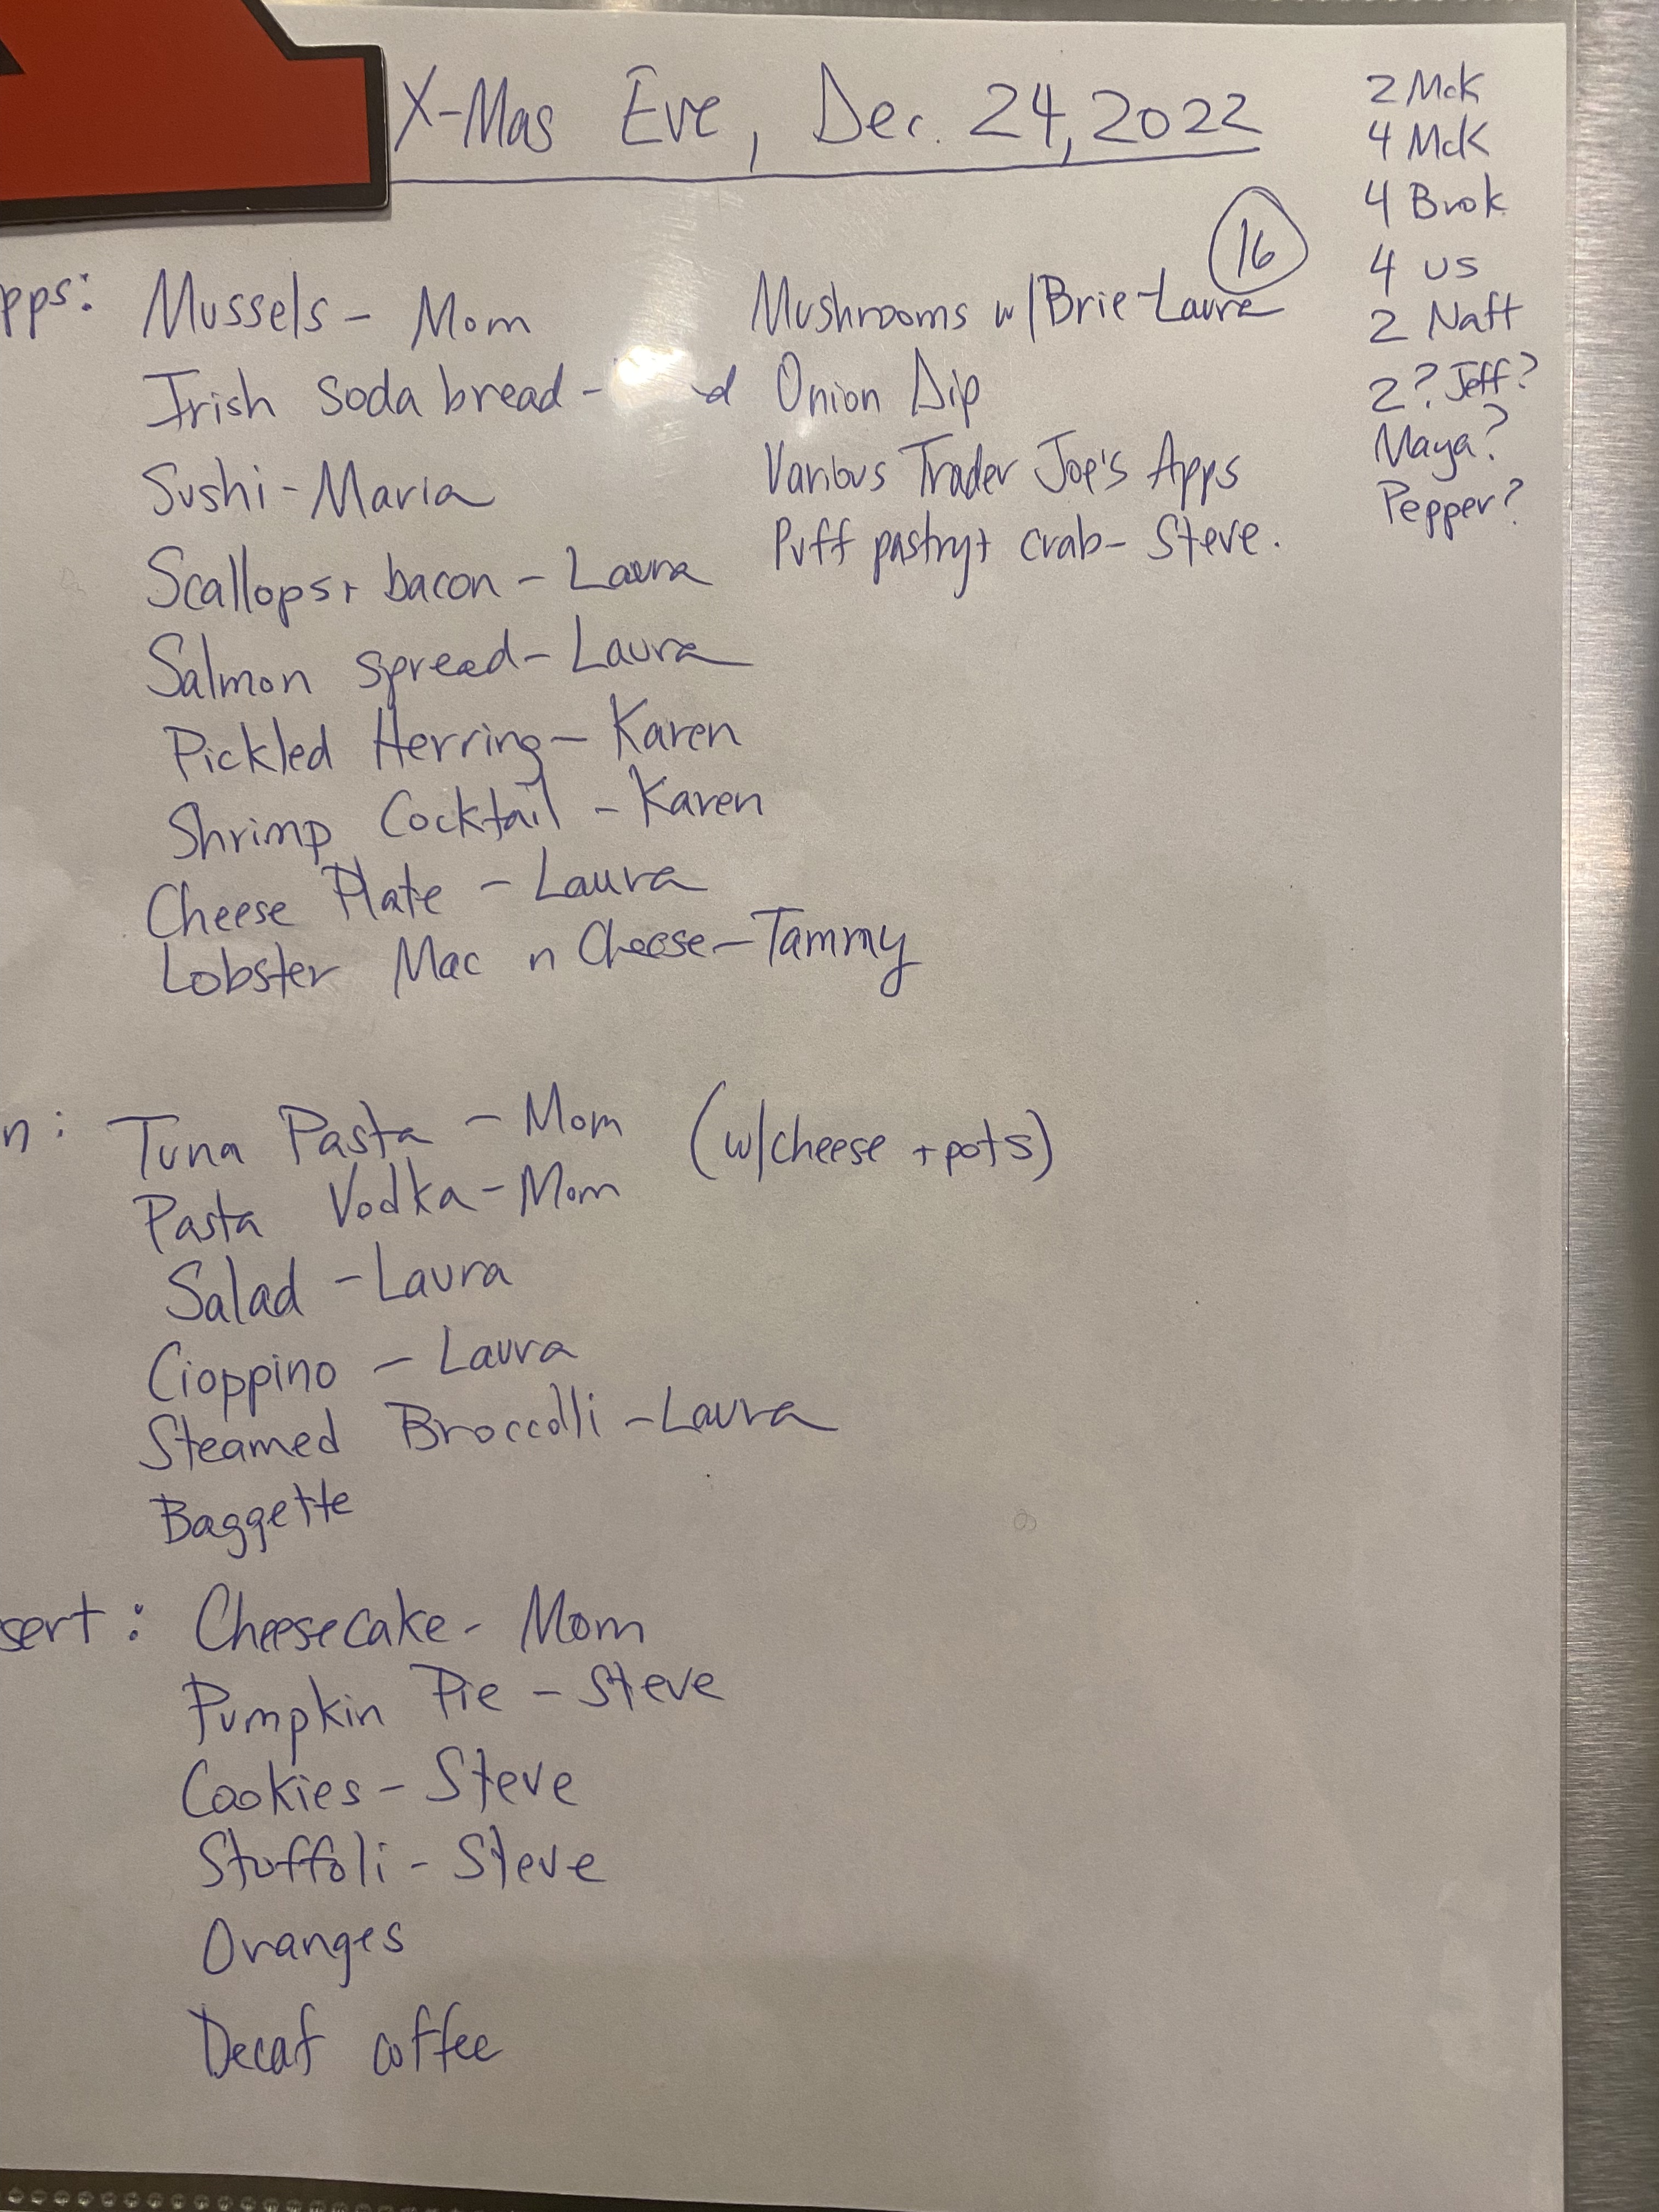 X-Mas Eve, Dec. 24, 2022
2 McK
4 McK
4 Brok
4 us
2 Naft
2? Jeff?
Maya?
Pepper?
16
pps: Mussels - Mom
Irish soda bread -
Sushi - Maria
Scallops + bacon - Laura
Salmon spread - Laura
Pickled Herring - Karen
Shrimp Cocktail - Karen
Cheese Plate - Laura
Lobster Mac n Cheese - Tammy
Mushrooms w/Brie - Laura
Onion Dip
Various Trader Joe's Apps
Puff pastry + crab - Steve.
n: Tuna Pasta - Mom (w/cheese + pots)
Pasta Vodka - Mom
Salad - Laura
Cioppino - Laura
Steamed Broccolli - Laura
Baggette
sert: Cheesecake - Mom
Pumpkin Pie - Steve
Cookies - Steve
Stuffoli - Steve
Oranges
Decaf coffee